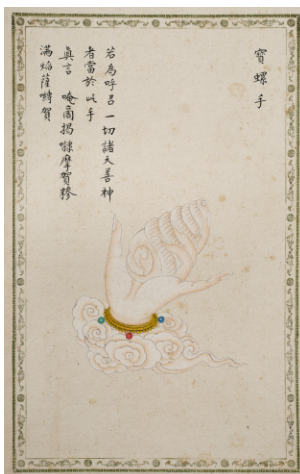 寶螺手
若為呼召一切諸天善神
者當於此手
真言 唵商揭㘑摩賀穇
滿焰薩嚩賀